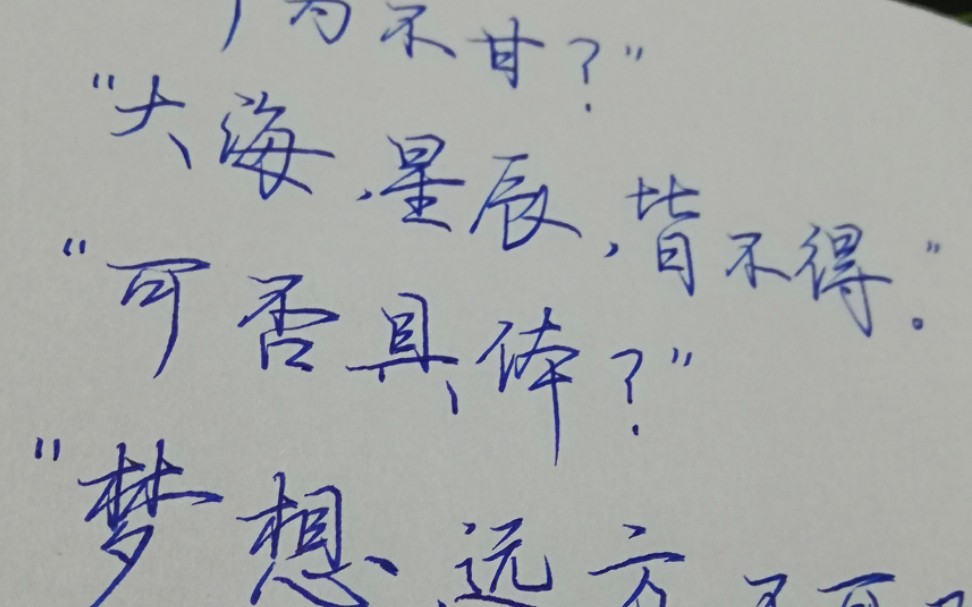 为不甘？”
“大海、星辰，皆不得。”
“可否具体？”
“梦想、远方不可